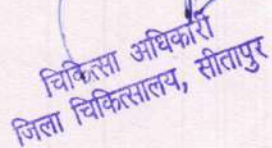 चिकित्सा अधिकारी
जिला चिकित्सालय, सीतापुर